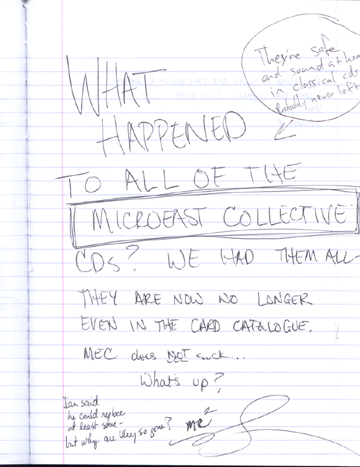 They're safe
and sound at home
in classical cds.
Probably never left
WHAT
HAPPENED
TO ALL OF THE
MICROEAST COLLECTIVE
CDs? WE HAD THEM ALL-
THEY ARE NOW NO LONGER
EVEN IN THE CARD CATALOGUE.
MEC does NOT suck...
What's up?
Ian said
he could replace
at least some-
but why are they so gone?